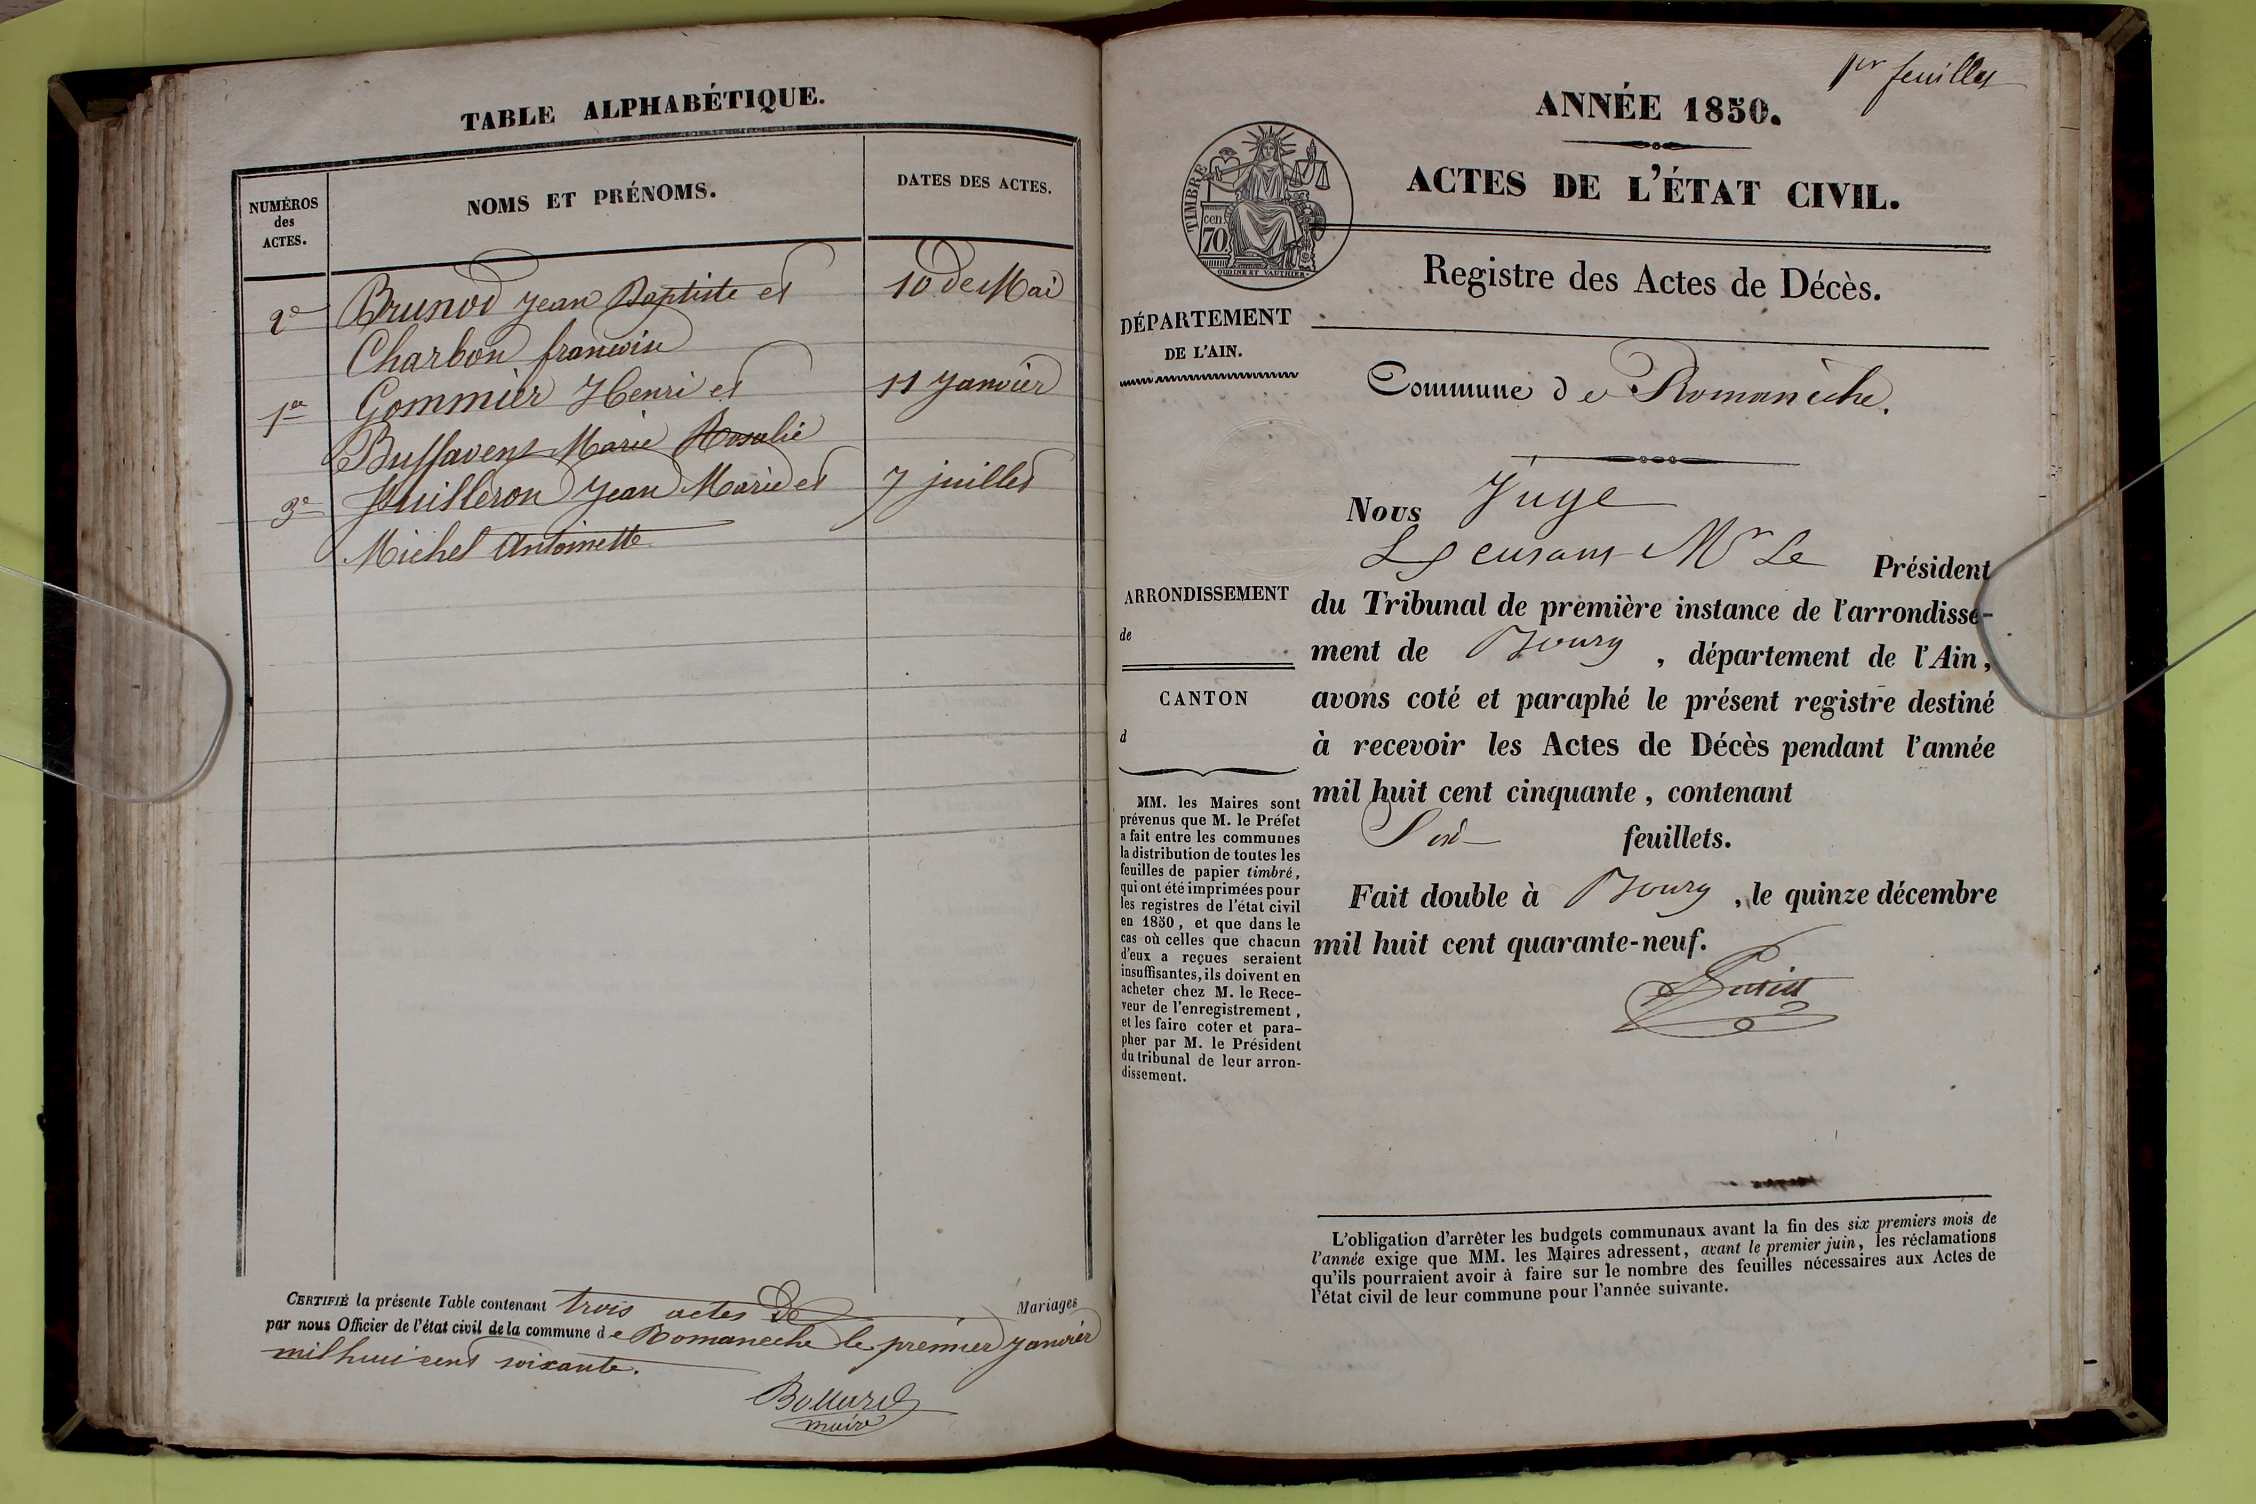 TABLE ALPHABÉTIQUE.
NUMÉROS
des
ACTES.
NOMS ET PRÉNOMS.
DATES DES ACTES.
2e Brunod Jean Baptiste et 10 de Mai
Charbon
1er Gommier Henri et 11 Janvier
Marie Rosalie
3e Jean Marie et 7 juillet
Michel Antoinette
CERTIFIÉ la présente Table contenant trois actes de Mariages
par nous Officier de l'état civil de la commune de Romaneche le premier Janvier
mil huit cent soixante.
maire
1er feuillet
ANNÉE 1850.
ACTES DE L'ÉTAT CIVIL.
TIMBRE
cen.
70
OUDINE ET VAUTHIER
Registre des Actes de Décès.
DÉPARTEMENT
DE L'AIN.
Commune de Romanèche.
Nous Juge
Mr Le Président
du Tribunal de première instance de l'arrondisse-
ment de Bourg, département de l'Ain,
avons coté et paraphé le présent registre destiné
à recevoir les Actes de Décès pendant l'année
mil huit cent cinquante, contenant
Six feuillets.
Fait double à Bourg, le quinze décembre
mil huit cent quarante-neuf.
ARRONDISSEMENT
de
CANTON
d
MM. les Maires sont
prévenus que M. le Préfet
a fait entre les communes
la distribution de toutes les
feuilles de papier timbré,
qui ont été imprimées pour
les registres de l'état civil
en 1850, et que dans le
cas où celles que chacun
d'eux a reçues seraient
insuffisantes, ils doivent en
acheter chez M. le Rece-
veur de l'enregistrement,
et les faire coter et para-
pher par M. le Président
du tribunal de leur arron-
dissement.
L'obligation d'arrêter les budgets communaux avant la fin des six premiers mois de
l'année exige que MM. les Maires adressent, avant le premier juin, les réclamations
qu'ils pourraient avoir à faire sur le nombre des feuilles nécessaires aux Actes de
l'état civil de leur commune pour l'année suivante.